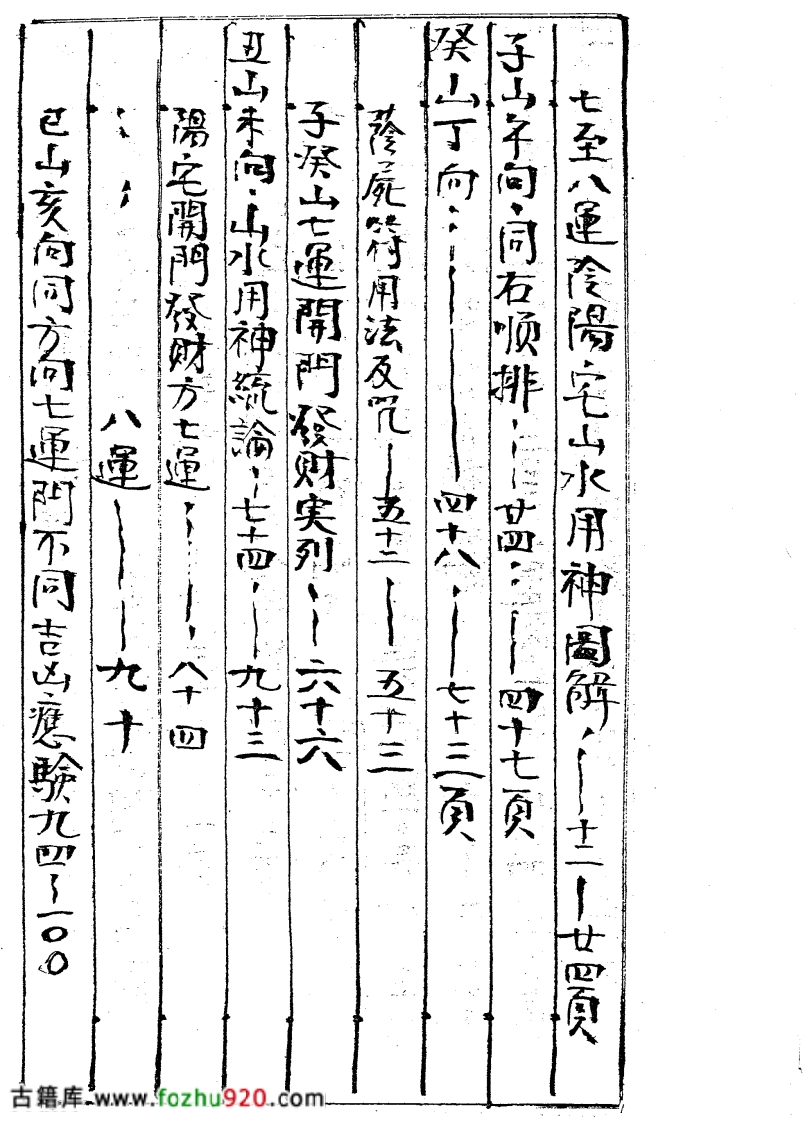 七至八運陰陽宅山水用神圖解、——十二—廿四頁
子山午向、同右順排、、、廿四、、——四十七頁
癸山丁向、、————四十八、——七十三頁
蔭屍符用法及咒——五十二——五十三
子癸山七運開門發財実列、——六十六
丑山未向、山水用神統論、、七十四、——九十三
陽宅開門發財方七運、、——、八十四
、、、八運————九十
巳山亥向同方向七運門不同吉凶應驗九四〜一〇〇
古籍库 www.fozhu920.com